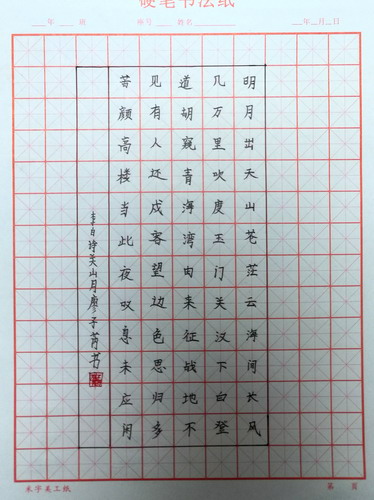 硬笔书法纸
年 班 座号 姓名 年 月 日
明月出天山苍茫云海间长风
几万里吹度玉门关汉下白登
道胡窥青海湾由来征战地不
见有人还戍客望边色思归多
苦颜高楼当此夜叹息未应闲
李白诗关山月廖子芮书
米字美工纸
第 页